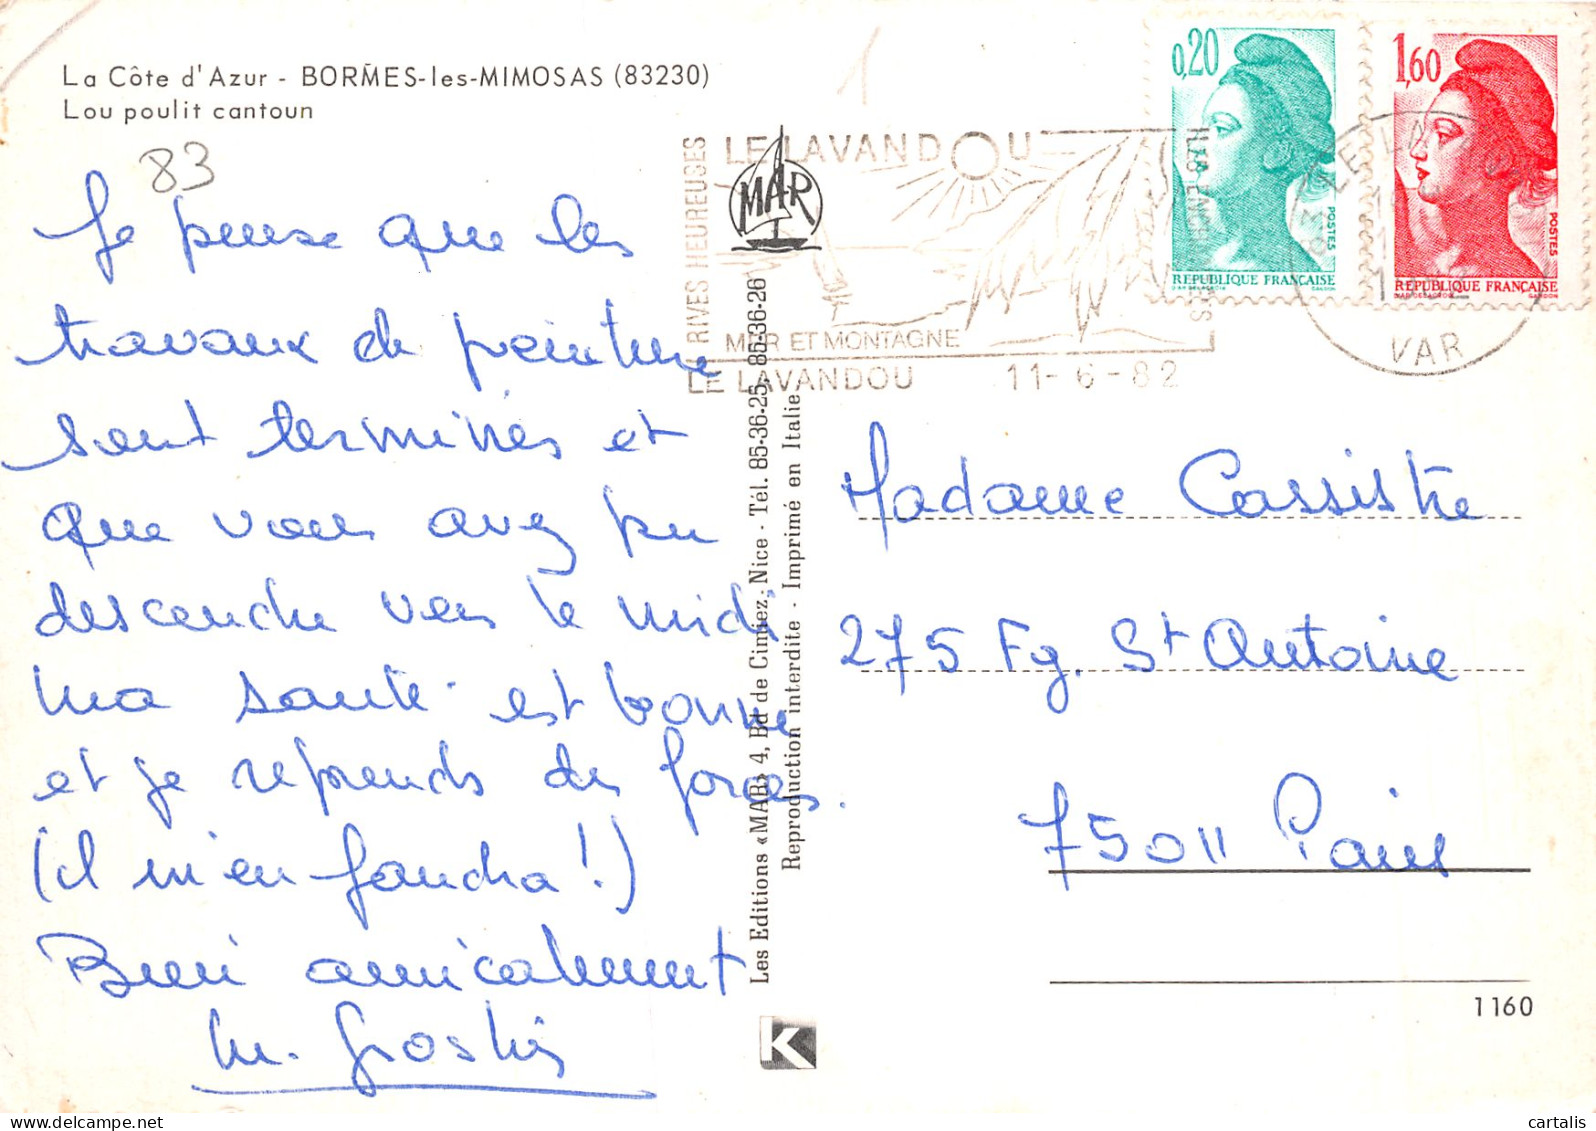 La Côte d'Azur - BORMES-les-MIMOSAS (83230)
Lou poulit cantoun
83
Je pense que les
travaux de peinture
sont terminés et
que vous avez pu
descendre vers le midi
ma santé est bonne
et je reprends des forces.
(il m'en faudra !)
Bien amicalement
RIVES HEUREUSES
LE LAVANDOU
MER ET MONTAGNE
LE LAVANDOU 11-6-82
MAR
0,20
POSTES
REPUBLIQUE FRANÇAISE
1,60
POSTES
REPUBLIQUE FRANÇAISE
GANDON
83 LE LA
VAR
Les Editions «MAR» 4, Bd de Cimiez, Nice - Tél. 85-36-25, 85-36-26
Reproduction interdite - Imprimé en Italie
Madame Cassistre
275 Fg. St Antoine
75011 Paris
1160
K
cartalis